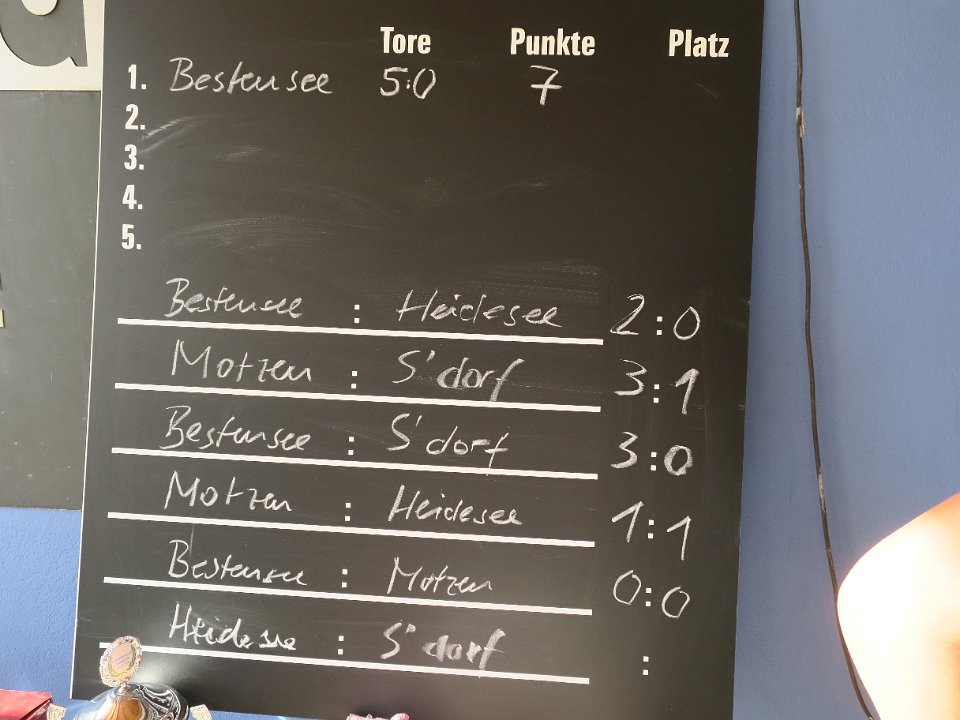 Tore Punkte Platz
1. Bestensee 5:0 7
2.
3.
4.
5.
Bestensee : Heidesee 2:0
Motzen : S'dorf 3:1
Bestensee : S'dorf 3:0
Motzen : Heidesee 1:1
Bestensee : Motzen 0:0
Heidesee : S'dorf :